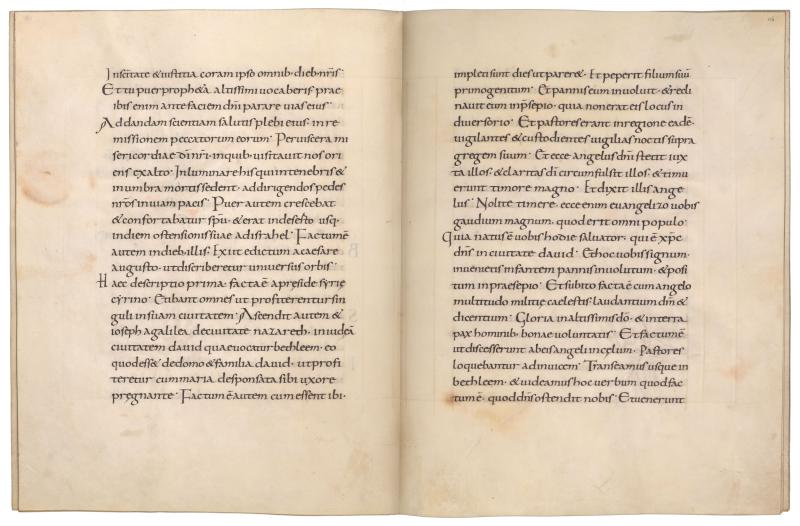 In scitate & iustitia coram ipso omnib· dieb· nris·
Et tu puer proph&a altissimi uocaberis prae
ibis enim ante faciem dni parare uias eius·
Ad dandam scientiam salutis plebi eius· in re
missionem peccatorum eorum· Per uiscera mi
sericordiae di nri· in quib· uisitauit nos ori
ens ex alto· Inluminare his qui in tenebris &
in umbra mortis sedent· ad dirigendos pedes
nros in uiam pacis· Puer autem crescebat
& confortabatur spu· & erat in deserto usq·
in diem ostensionis suae ad israhel· Factum ē
autem in dieb· illis· Exiit edictum a caesare
augusto· ut discriberetur uniuersus orbis·
Haec descriptio prima· facta ē a preside syrię
cyrino· Et ibant omnes ut profiterentur sin
guli in suam ciuitatem· Ascendit autem &
ioseph a galilea de ciuitate nazareth· in iudeā
ciuitatem dauid quae uocatur bethleem· eo
quod ess& de domo & familia dauid· ut profi
teretur cum maria desponsata sibi uxore
pregnante· Factum ē autem cum essent ibi·
impleti sunt dies ut parer&· Et peperit filium suū
primogenitum· Et pannis eum inuoluit· & recli
nauit eum in p̄sepio· quia non erat eis locus in
diuersorio· Et pastores erant in regione eadē·
uigilantes & custodientes uigilias noctis supra
gregem suum· Et ecce angelus dni stetit iux
ta illos· & claritas dī circumfulsit illos· & timu
erunt timore magno· Et dixit illis ange
lus· Nolite timere· ecce enim euangelizo uobis
gaudium magnum· quod erit omni populo·
Quia natus ē uobis hodie saluator· qui ē xpc
dns in ciuitate dauid· Et hoc uobis signum·
inuenietis infantem pannis inuolutum· & posi
tum in praesepio· Et subito facta ē cum angelo
multitudo militiae caelestis· laudantium dm &
dicentium· Gloria in altissimis do· & in terra
pax hominib· bonae uoluntatis· Et factum ē
ut discesserunt ab eis angeli in cęlum· Pastores
loquebantur ad inuicem· Transeamus usque in
bethleem· & uideamus hoc uerbum quod fac
tum ē· quod dns ostendit nobis· Et uenerunt